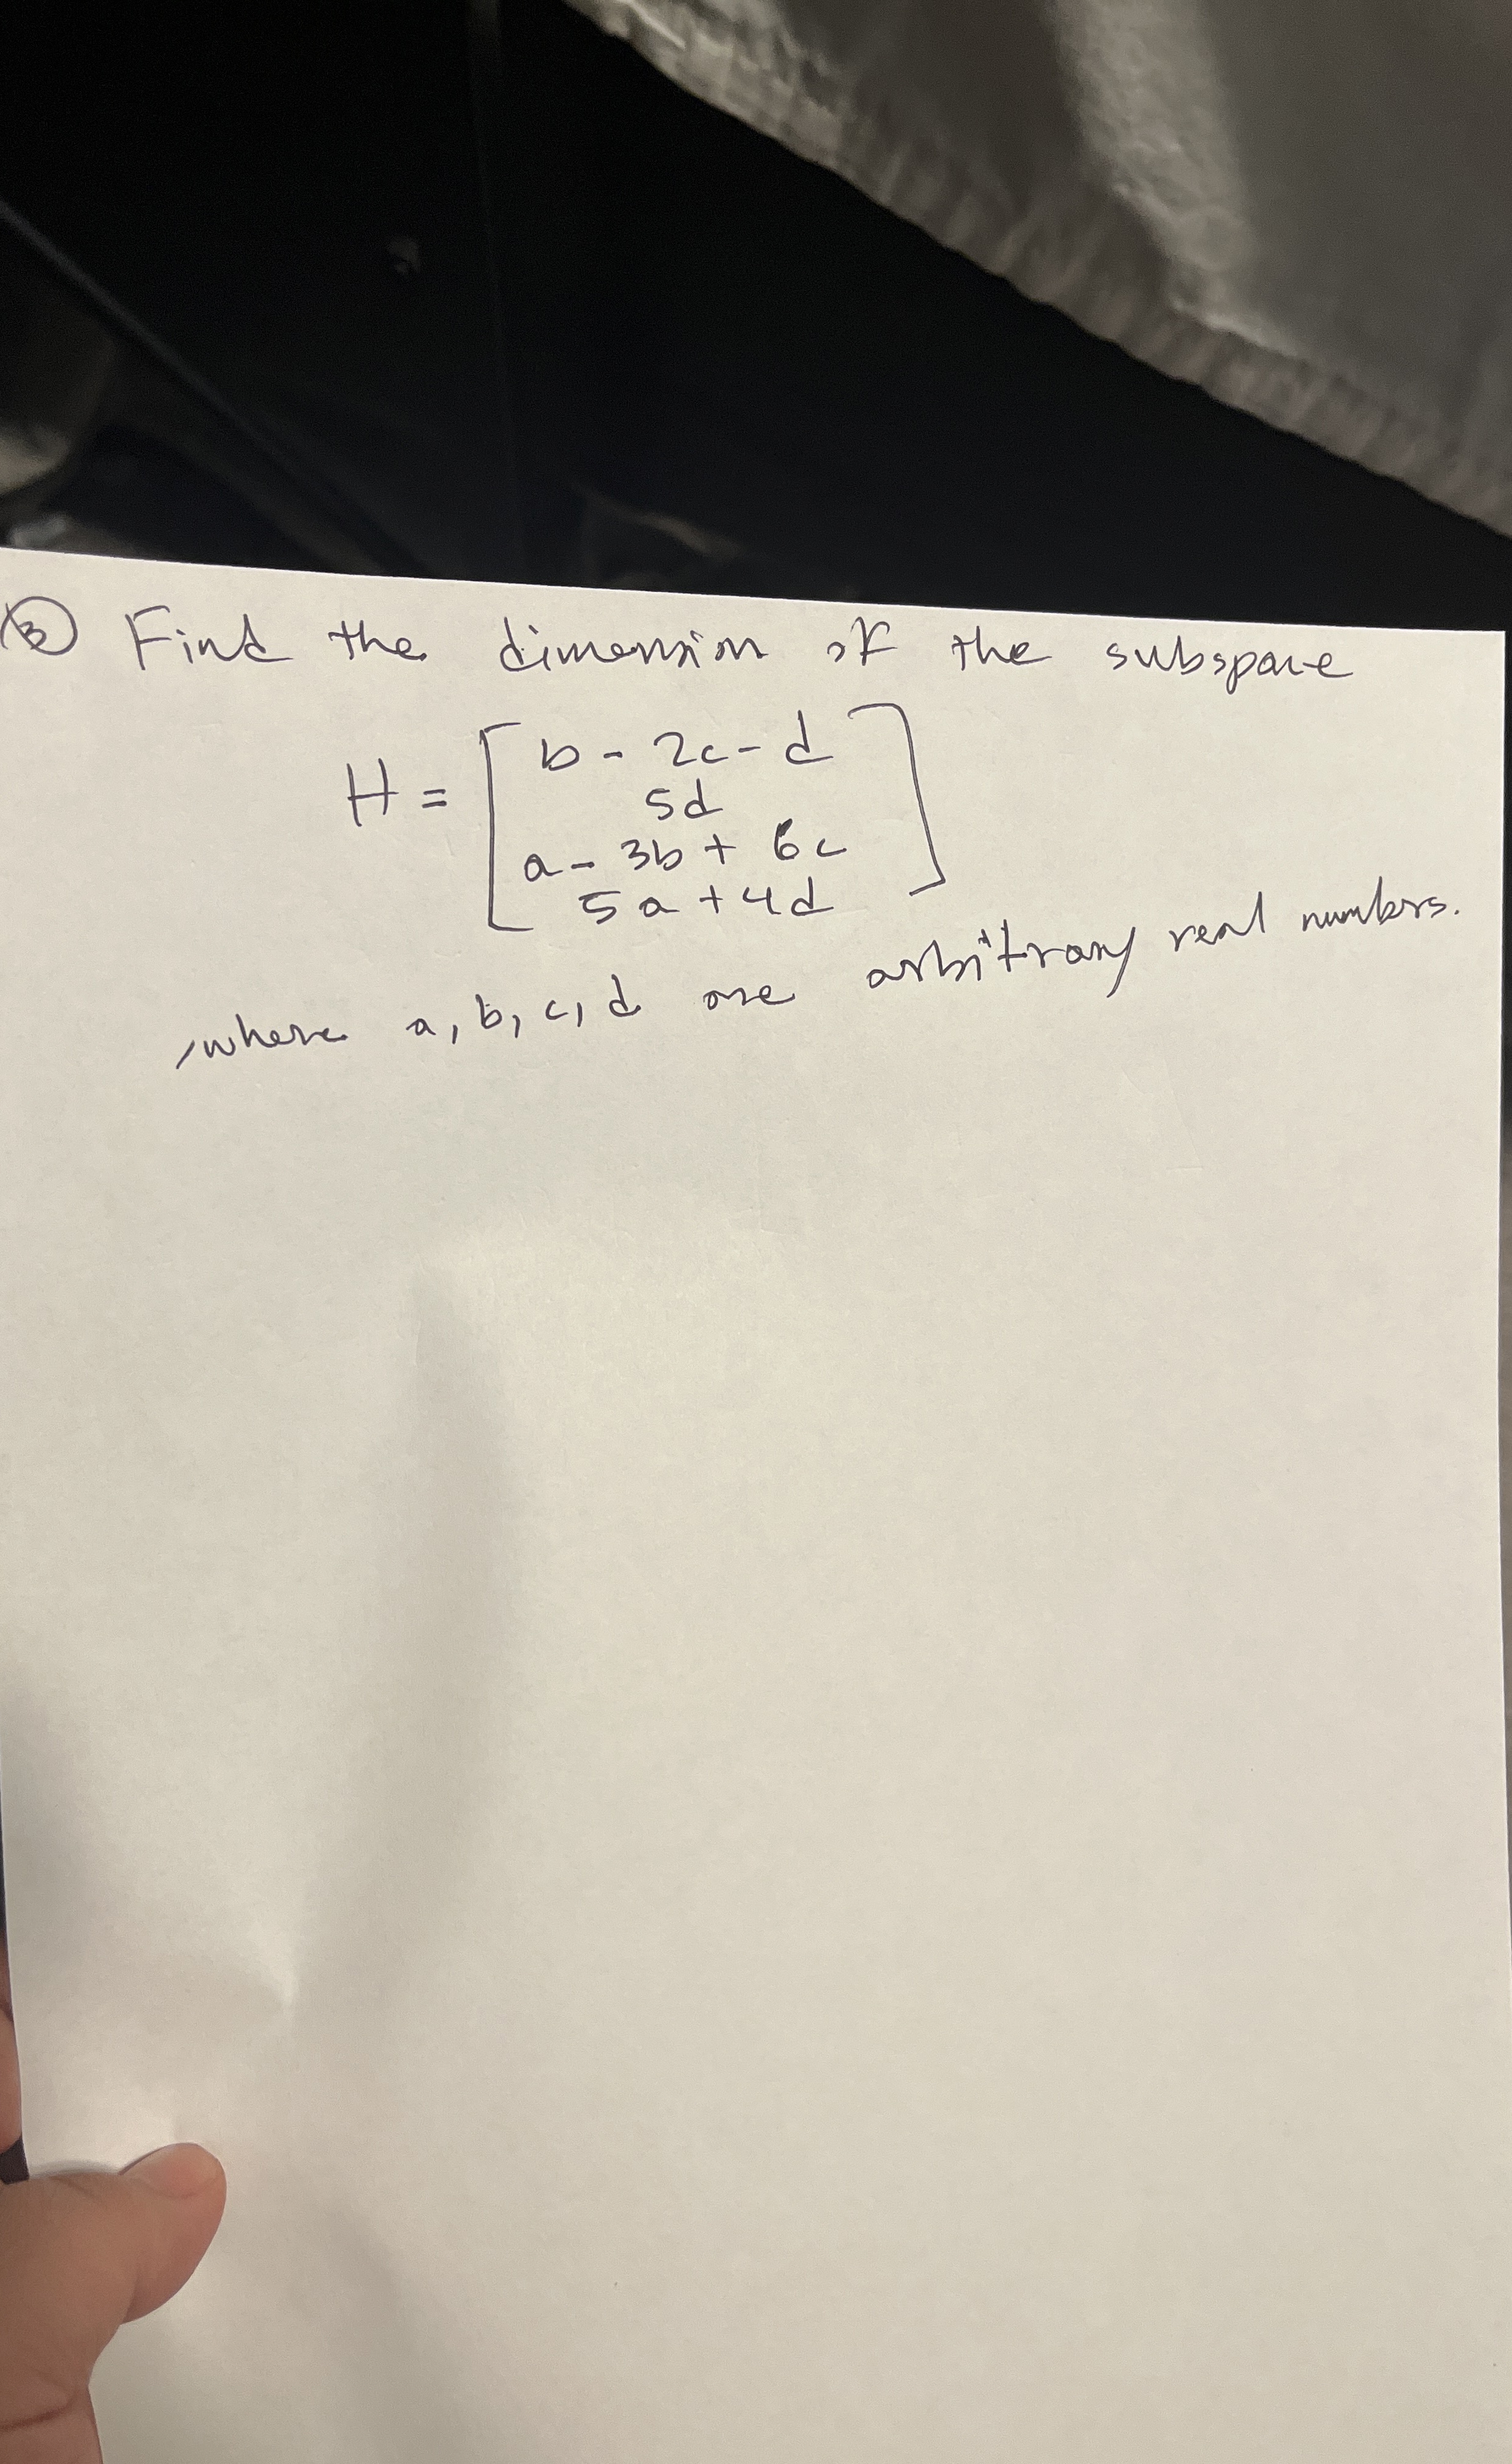 ③ Find the dimension of the subspace
H = [ b - 2c - d
5d
a - 3b + 6c
5a + 4d ]
, where a, b, c, d are arbitrary real numbers.